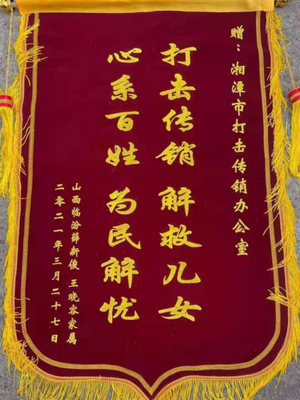 赠：湘潭市打击传销办公室
打击传销 解救儿女
心系百姓 为民解忧
山西临汾薛新俊 王晓容家属
二零二一年三月二十七日